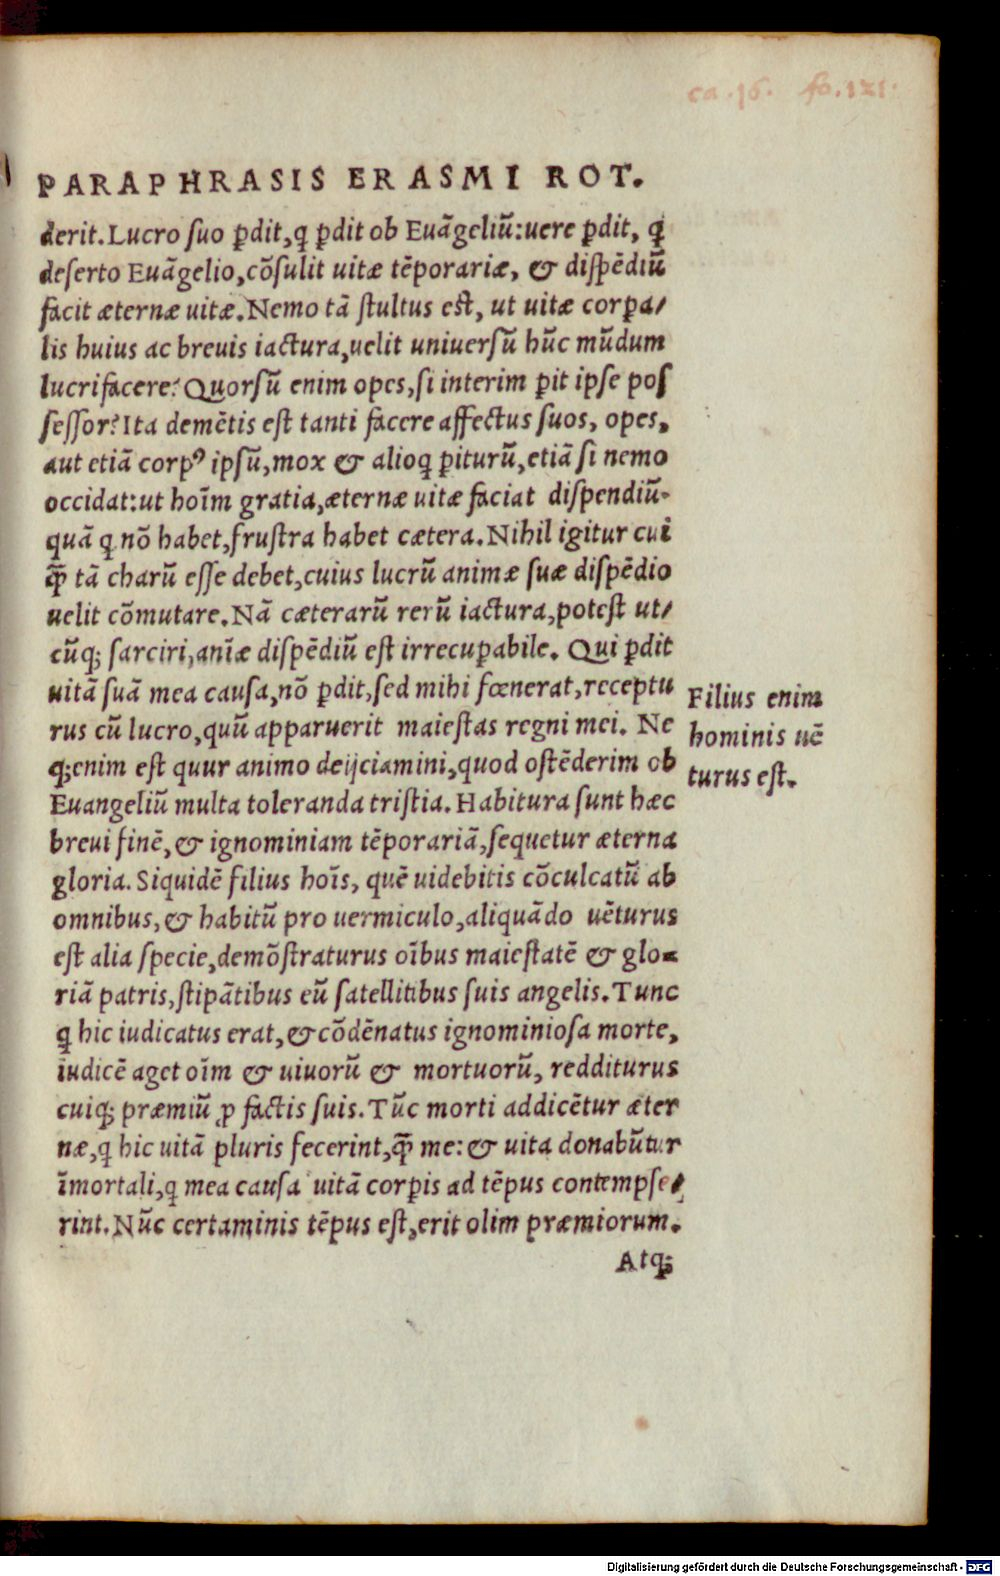 ca. 16. fo. 121.
PARAPHRASIS ERASMI ROT.
derit. Lucro suo ꝑdit, q ꝑdit ob Euãgeliũ: uere ꝑdit, q
deserto Euãgelio, cõsulit uitæ tẽporariæ, & dispẽdiũ
facit æternæ uitæ. Nemo tã stultus est, ut uitæ corꝑa/
lis huius ac breuis iactura, uelit uniuersũ hũc mũdum
lucrifacere? Quorsũ enim opes, si interim ꝑit ipse pos
sessor? Ita demẽtis est tanti facere affectus suos, opes,
aut etiã corpꝰ ipsũ, mox & alioq ꝑiturũ, etiã si nemo
occidat: ut hoĩm gratia, æternæ uitæ faciat dispendiũ.
quã q nõ habet, frustra habet cætera. Nihil igitur cui
qꝫ̃ tã charũ esse debet, cuius lucrũ animæ suæ dispẽdio
uelit cõmutare. Nã cæterarũ rerũ iactura, potest ut/
cũqꝫ sarciri, anĩæ dispẽdiũ est irrecuꝑabile. Qui ꝑdit
uitã suã mea causa, nõ ꝑdit, sed mihi fœnerat, receptu
rus cũ lucro, quũ apparuerit maiestas regni mei. Ne
qꝫ enim est quur animo deijciamini, quod ostẽderim ob
Euangeliũ multa toleranda tristia. Habitura sunt hæc
breui finẽ, & ignominiam tẽporariã, sequetur æterna
gloria. Siquidẽ filius hoĩs, quẽ uidebitis cõculcatũ ab
omnibus, & habitũ pro uermiculo, aliquãdo uẽturus
est alia specie, demõstraturus oĩbus maiestatẽ & glo-
riã patris, stipãtibus eũ satellitibus suis angelis. Tunc
q hic iudicatus erat, & cõdẽnatus ignominiosa morte,
iudicẽ aget oĩm & uiuorũ & mortuorũ, redditurus
cuiqꝫ præmiũ ꝓ factis suis. Tũc morti addicẽtur æter
næ, q hic uitã pluris fecerint, qꝫ̃ me: & uita donabũtur
ĩmortali, q mea causa uitã corꝑis ad tẽpus contempse/
rint. Nũc certaminis tẽpus est, erit olim præmiorum.
Atqꝫ
Filius enim
hominis uẽ
turus est.
Digitalisierung gefördert durch die Deutsche Forschungsgemeinschaft - DFG